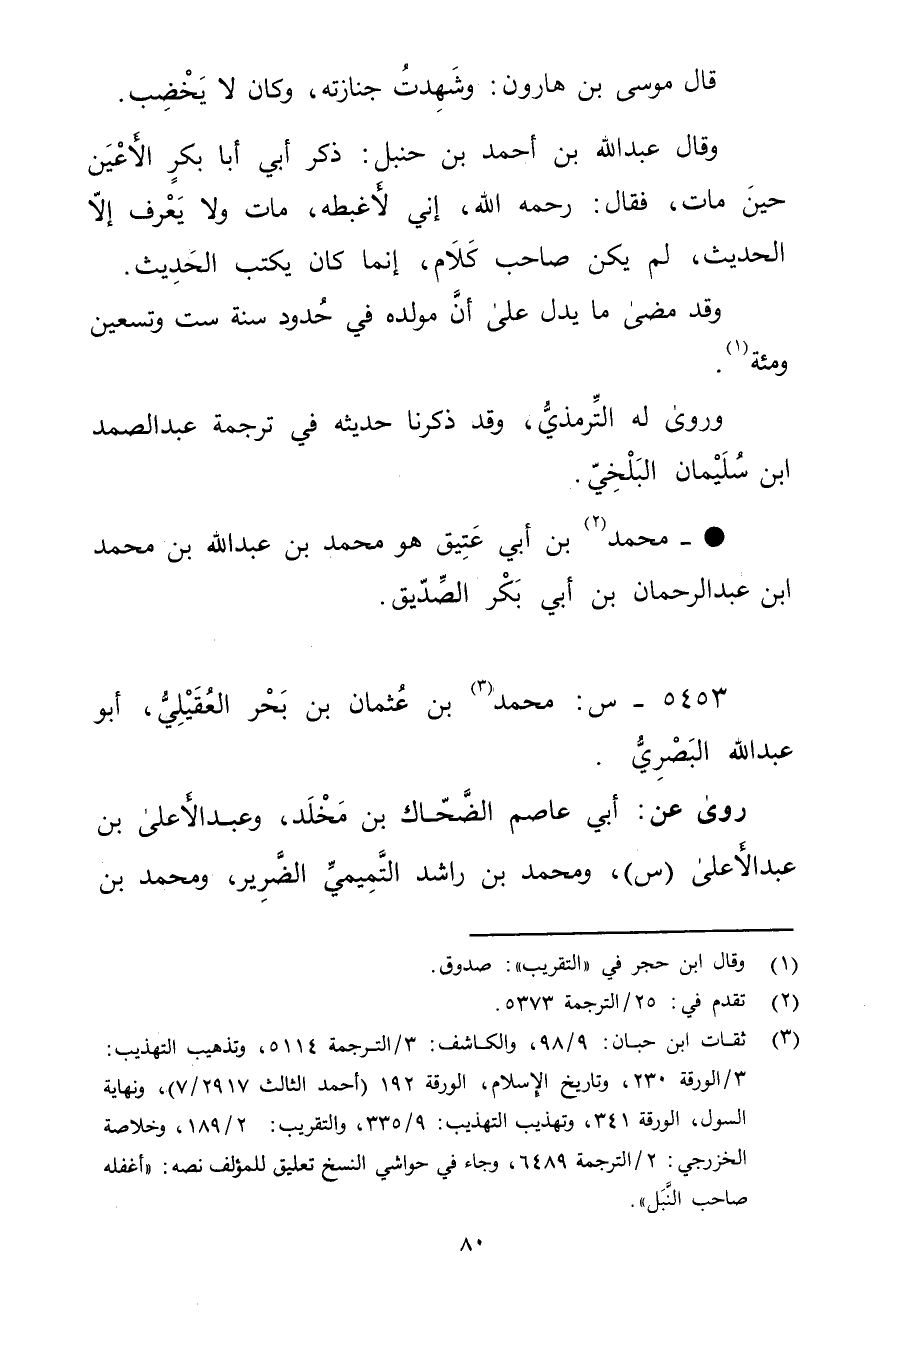 قال موسى بن هارون: وشَهِدتُ جنازته، وكان لا يَخْضِب.
وقال عبدالله بن أحمد بن حنبل: ذكر أبي أبا بكرٍ الأَعْيَن
حينَ مات، فقال: رحمه الله، إني لأَغبطه، مات ولا يَعْرف إلّا
الحديث، لم يكن صاحب كَلَام، إنما كان يكتب الحَدِيث.
وقد مضىٰ ما يدل علىٰ أنَّ مولده في حُدود سنة ست وتسعين
ومئة(١).
وروىٰ له التِّرمذيُّ، وقد ذكرنا حديثه في ترجمة عبدالصمد
ابن سُلَيْمان البَلْخِيّ.
● ـ محمد(٢) بن أبي عَتِيق هو محمد بن عبدالله بن محمد
ابن عبدالرحمان بن أبي بَكْر الصِّدّيق.
٥٤٥٣ ـ س: محمد(٣) بن عُثمان بن بَحْر العُقَيْلِيُّ، أبو
عبدالله البَصْرِيُّ .
روىٰ عن: أبي عاصم الضَّحّاك بن مَخْلَد، وعبدالأَعلىٰ بن
عبدالأَعلىٰ (س)، ومحمد بن راشد التَّمِيميِّ الضَّرِير، ومحمد بن
(١) وقال ابن حجر في «التقريب»: صدوق.
(٢) تقدم في: ٢٥/الترجمة ٥٣٧٣.
(٣) ثقات ابن حبان: ٩٨/٩، والكاشف: ٣/الترجمة ٥١١٤، وتذهيب التهذيب:
٣/الورقة ٢٣٠، وتاريخ الإسلام، الورقة ١٩٢ (أحمد الثالث ٧/٢٩١٧)، ونهاية
السول، الورقة ٣٤١، وتهذيب التهذيب: ٣٣٥/٩، والتقريب: ١٨٩/٢، وخلاصة
الخزرجي: ٢/الترجمة ٦٤٨٩، وجاء في حواشي النسخ تعليق للمؤلف نصه: «أغفله
صاحب النَّبَل».
٨٠